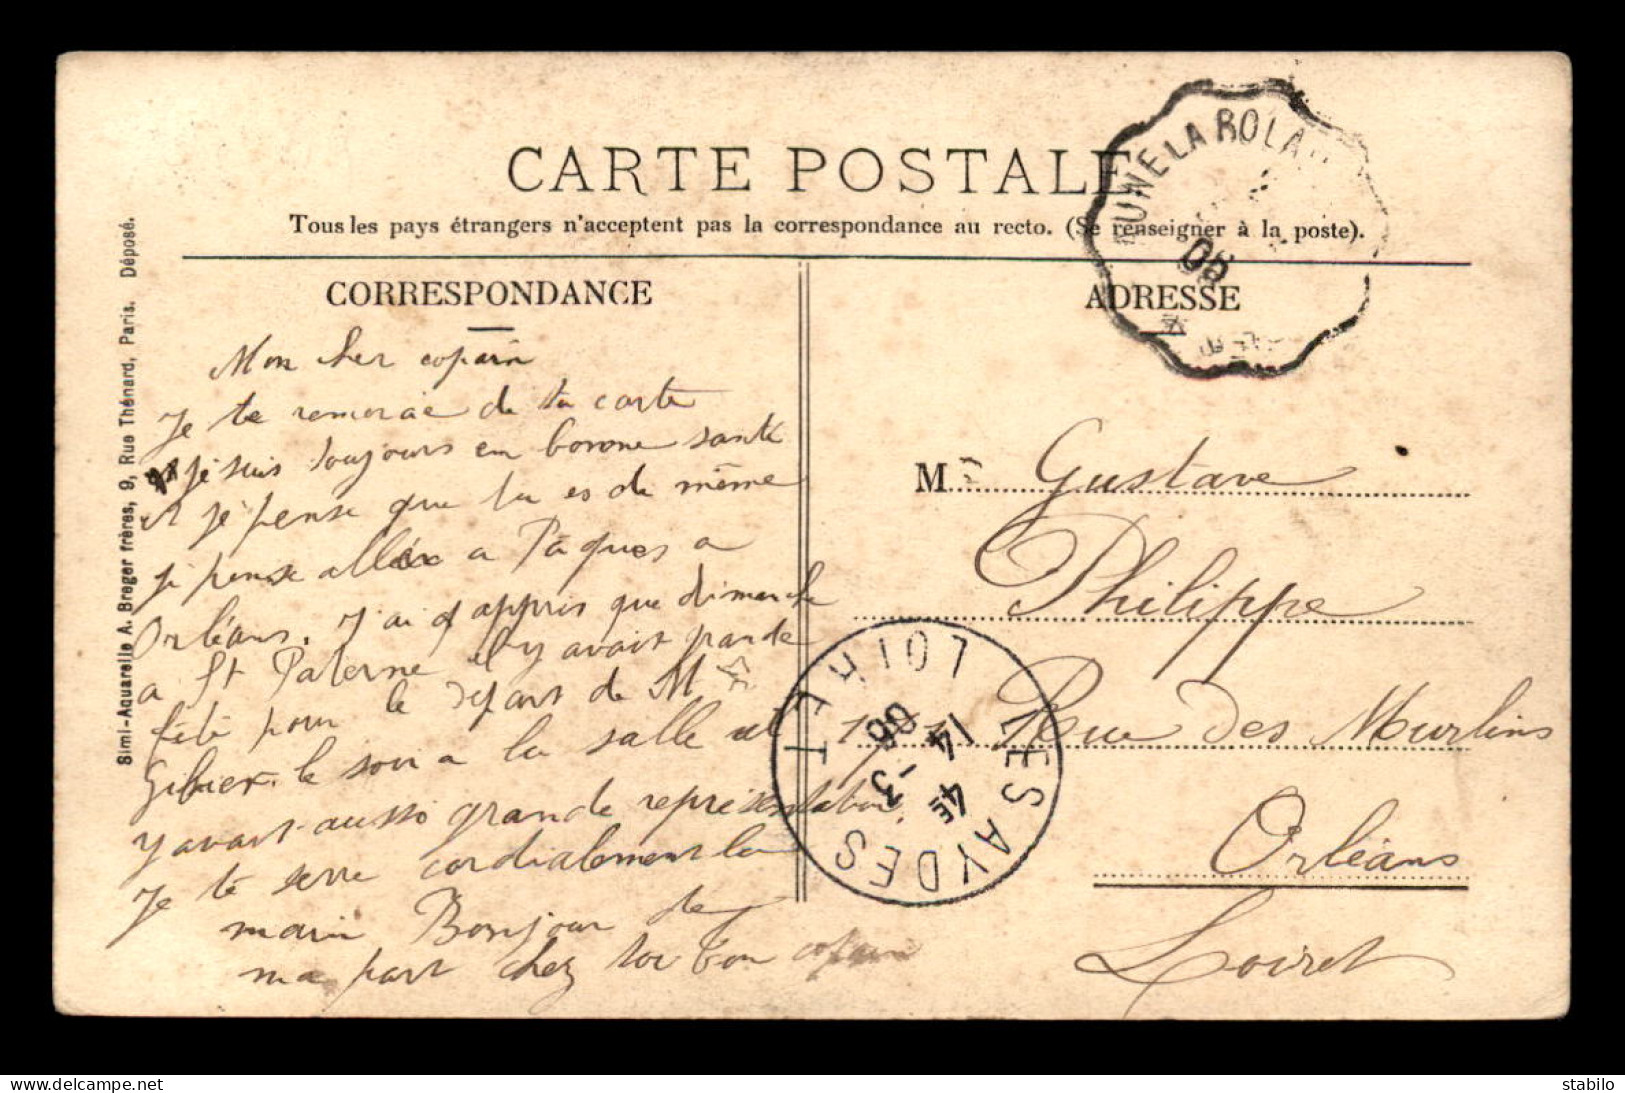 CARTE POSTALE
Tous les pays étrangers n'acceptent pas la correspondance au recto. (Se renseigner à la poste).
CORRESPONDANCE
Mon cher copain
Je te remercie de ta carte
je suis toujours en bonne santé
et je pense que tu es de même
je pense aller a Pâques a
Orléans. J'ai appris que dimanche
a St Paterne il y avait grande
fête pour le départ de Mr
Gibier. le soir a la salle
y avait aussi grande représentation.
Je te serre cordialement la
main Bonjour de
ma part chez toi ton copain
Simi-Aquarelle A. Breger frères, 9, Rue Thénard, Paris. Déposé.
ADRESSE
M r Gustave
Philippe
Rue des Murlins
Orléans
Loiret
UNE LA ROLA
06
LES AYDES
LOIRET
4E
14 - 3
06
stabilo
www.delcampe.net